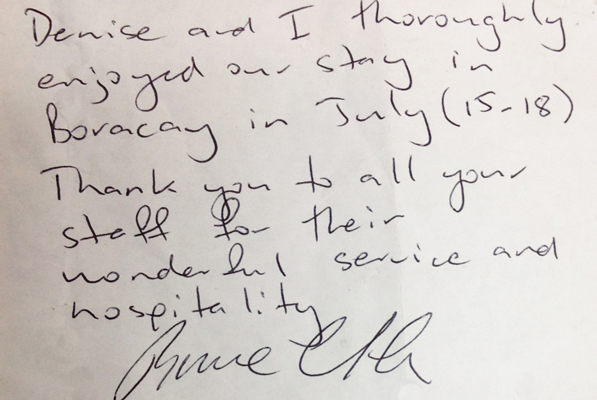 Denise and I thoroughly
enjoyed our stay in
Boracay in July (15-18)
Thank you to all your
staff for their
wonderful service and
hospitality